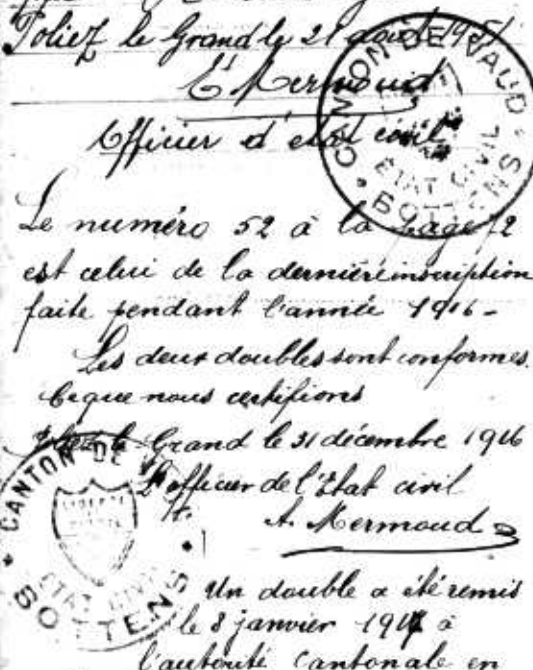 Poliez le Grand le 21 août 1951
Mermoud
Officier d'état civil
CANTON DE VAUD
ETAT CIVIL
BOTTENS
Le numéro 52 à la page 72
est celui de la dernière inscription
faite pendant l'année 1916 -
Les deux doubles sont conformes.
Ce que nous certifions
le Grand le 31 décembre 1916
L'officier de l'Etat civil
A. Mermoud
CANTON DE
LIBERTE
ETAT CIVIL
BOTTENS
Un double a été remis
le 8 janvier 1917 à
l'autorité Cantonale en